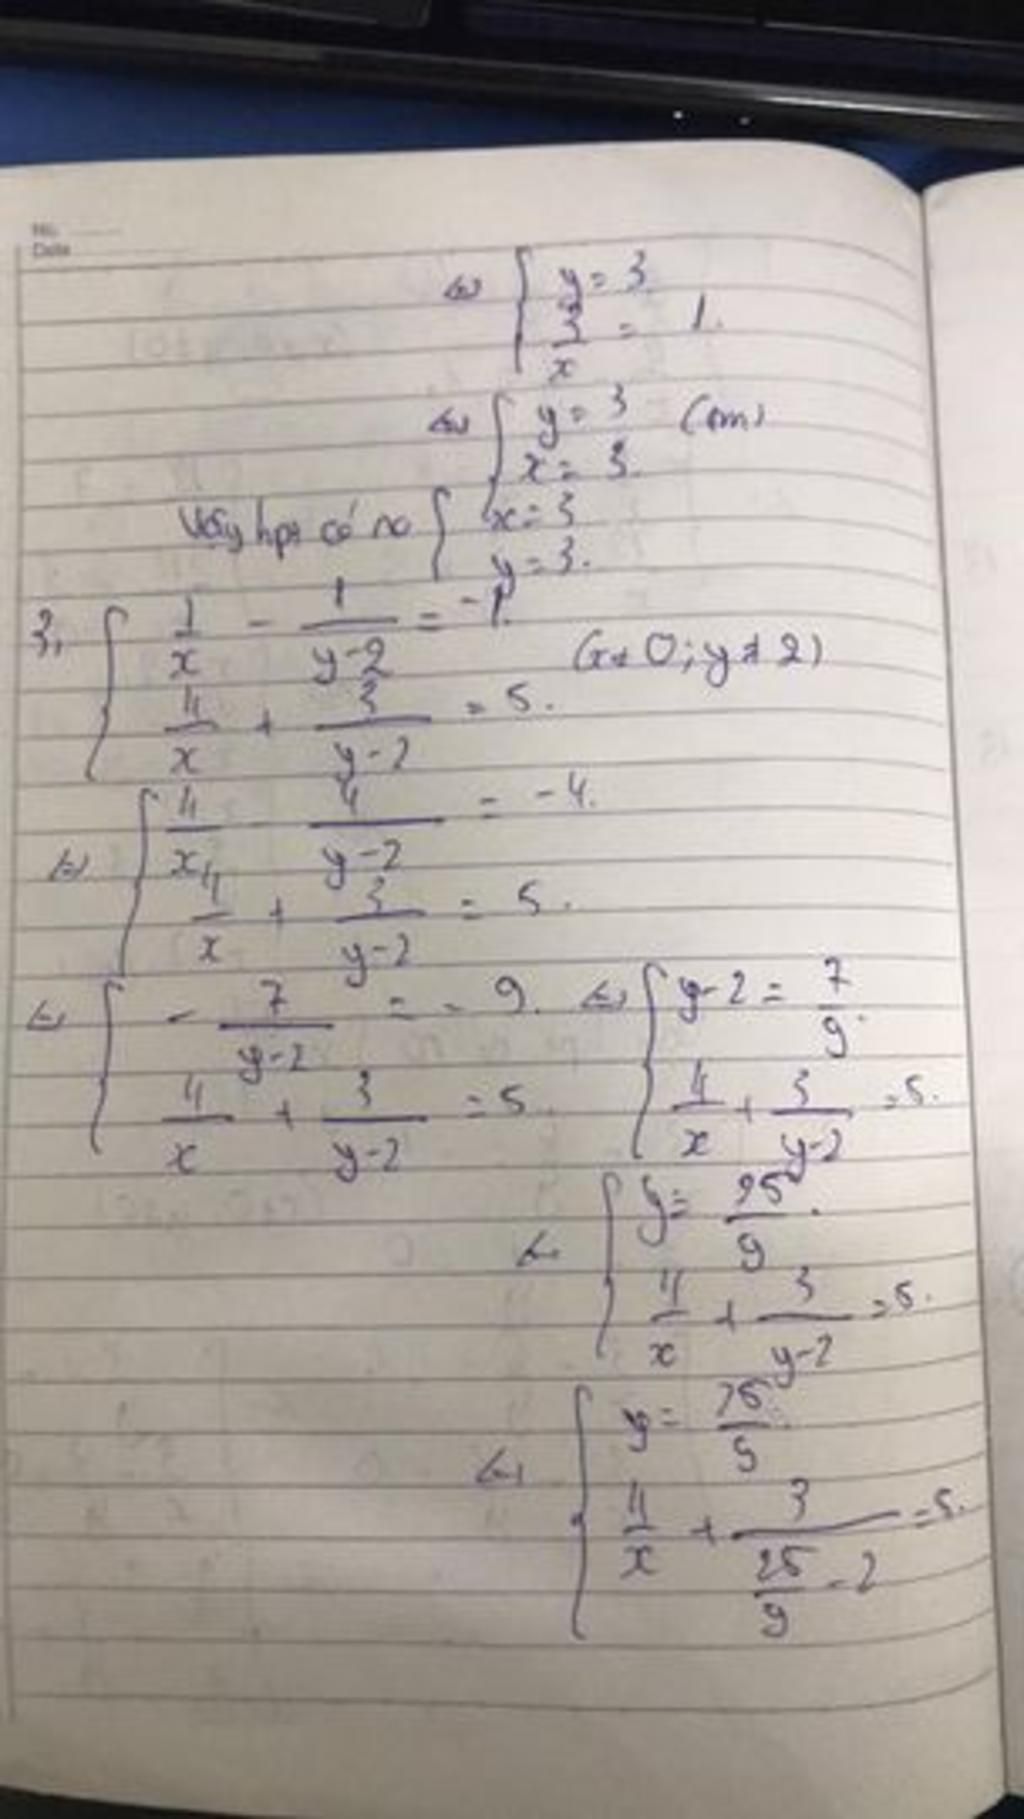 No.
Date
⇔ { y = 3
3/x = 1.
⇔ { y = 3 (tm)
x = 3.
Vậy hpt có no { x = 3
y = 3.
3, { 1/x - 1/(y-2) = -1. (x ≠ 0; y ≠ 2)
4/x + 3/(y-2) = 5.
⇔ { 4/x - 4/(y-2) = -4.
4/x + 3/(y-2) = 5.
⇔ { - 7/(y-2) = - 9. ⇔ { y-2 = 7/9.
4/x + 3/(y-2) = 5. 4/x + 3/(y-2) = 5.
⇔ { y = 25/9.
4/x + 3/(y-2) = 5.
⇔ { y = 25/9
4/x + 3/(25/9 - 2) = 5.